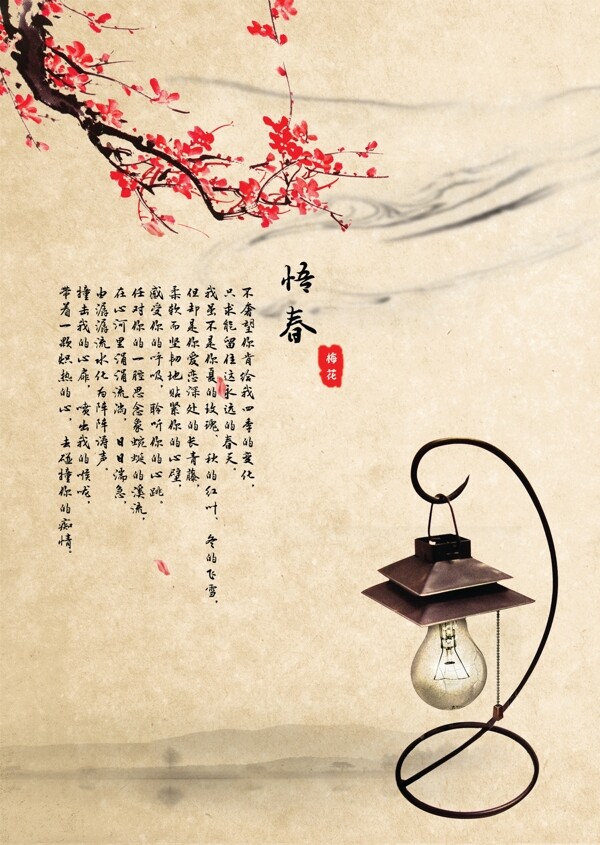 悟春
梅花
不奢望你肯给我四季的变化，
只求能留住这永远的春天。
我虽不是你夏的玫瑰，秋的红叶，冬的飞雪，
但却是你爱恋深处的长青藤，
柔软而坚韧地贴紧你的心壁，
感受你的呼吸，聆听你的心跳。
任对你的一腔思念象蜿蜒的溪流，
在心河里涓涓流淌，日日湍急，
由潺潺流水化为阵阵涛声，
撞击我的心扉，喷出我的喉咙，
带着一颗炽热的心，去碰撞你的痴情。